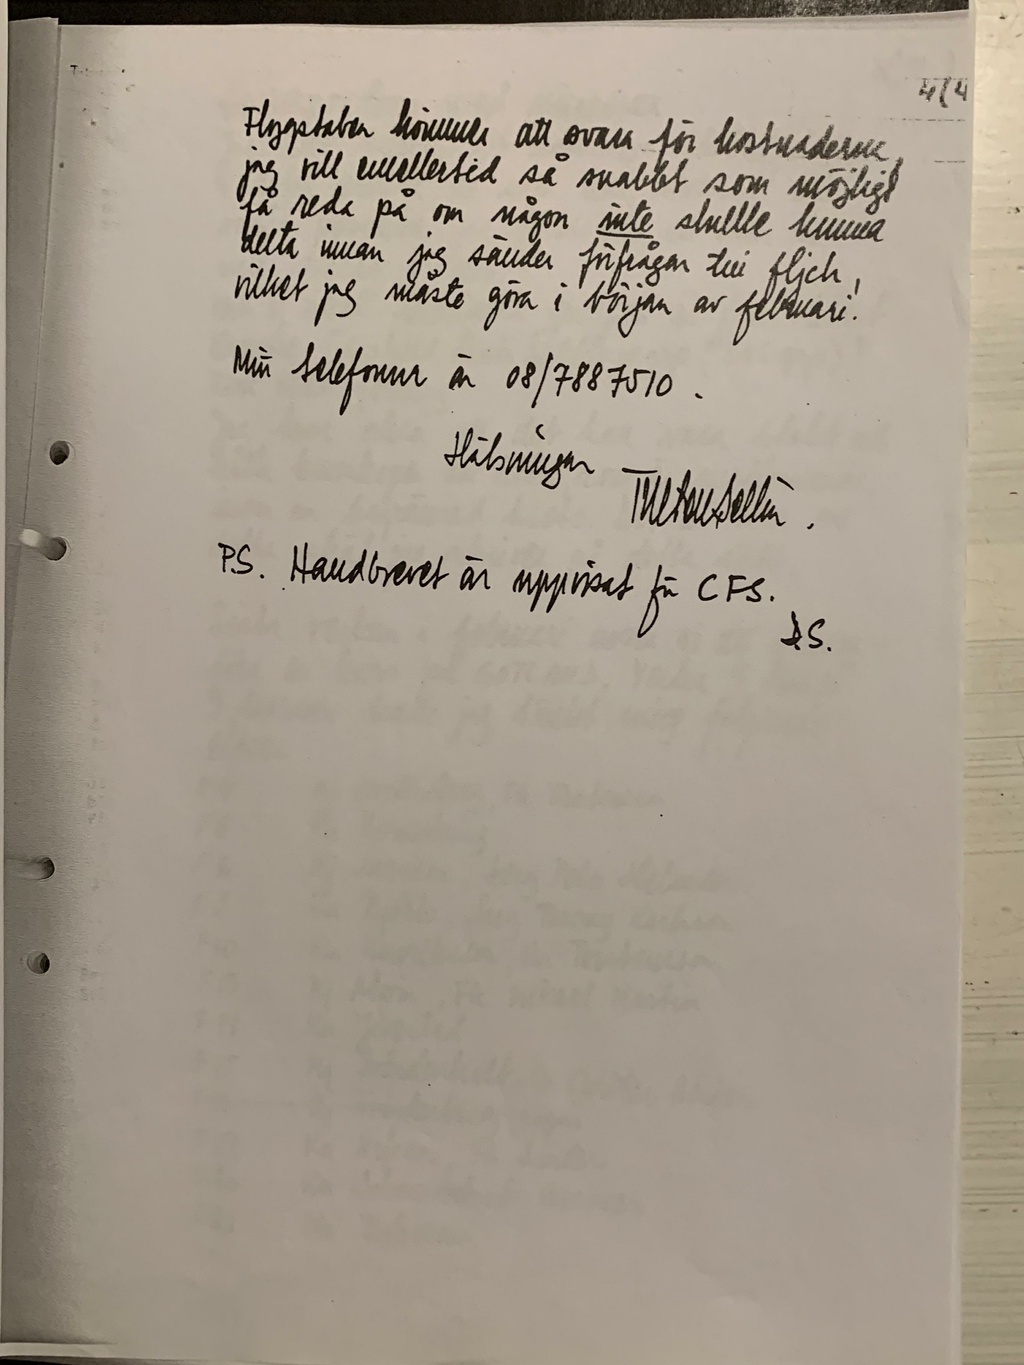 4(4
Flygstaben kommer att svara för kostnaderna,
jag vill emellertid så snabbt som möjligt
få reda på om någon inte skulle kunna
delta innan jag sänder förfrågan till fljch,
vilket jag måste göra i början av februari.
Min telefonnr är 08/7887510.
Hälsningar
P.S. Handbrevet är uppvisat för CFS.
DS.